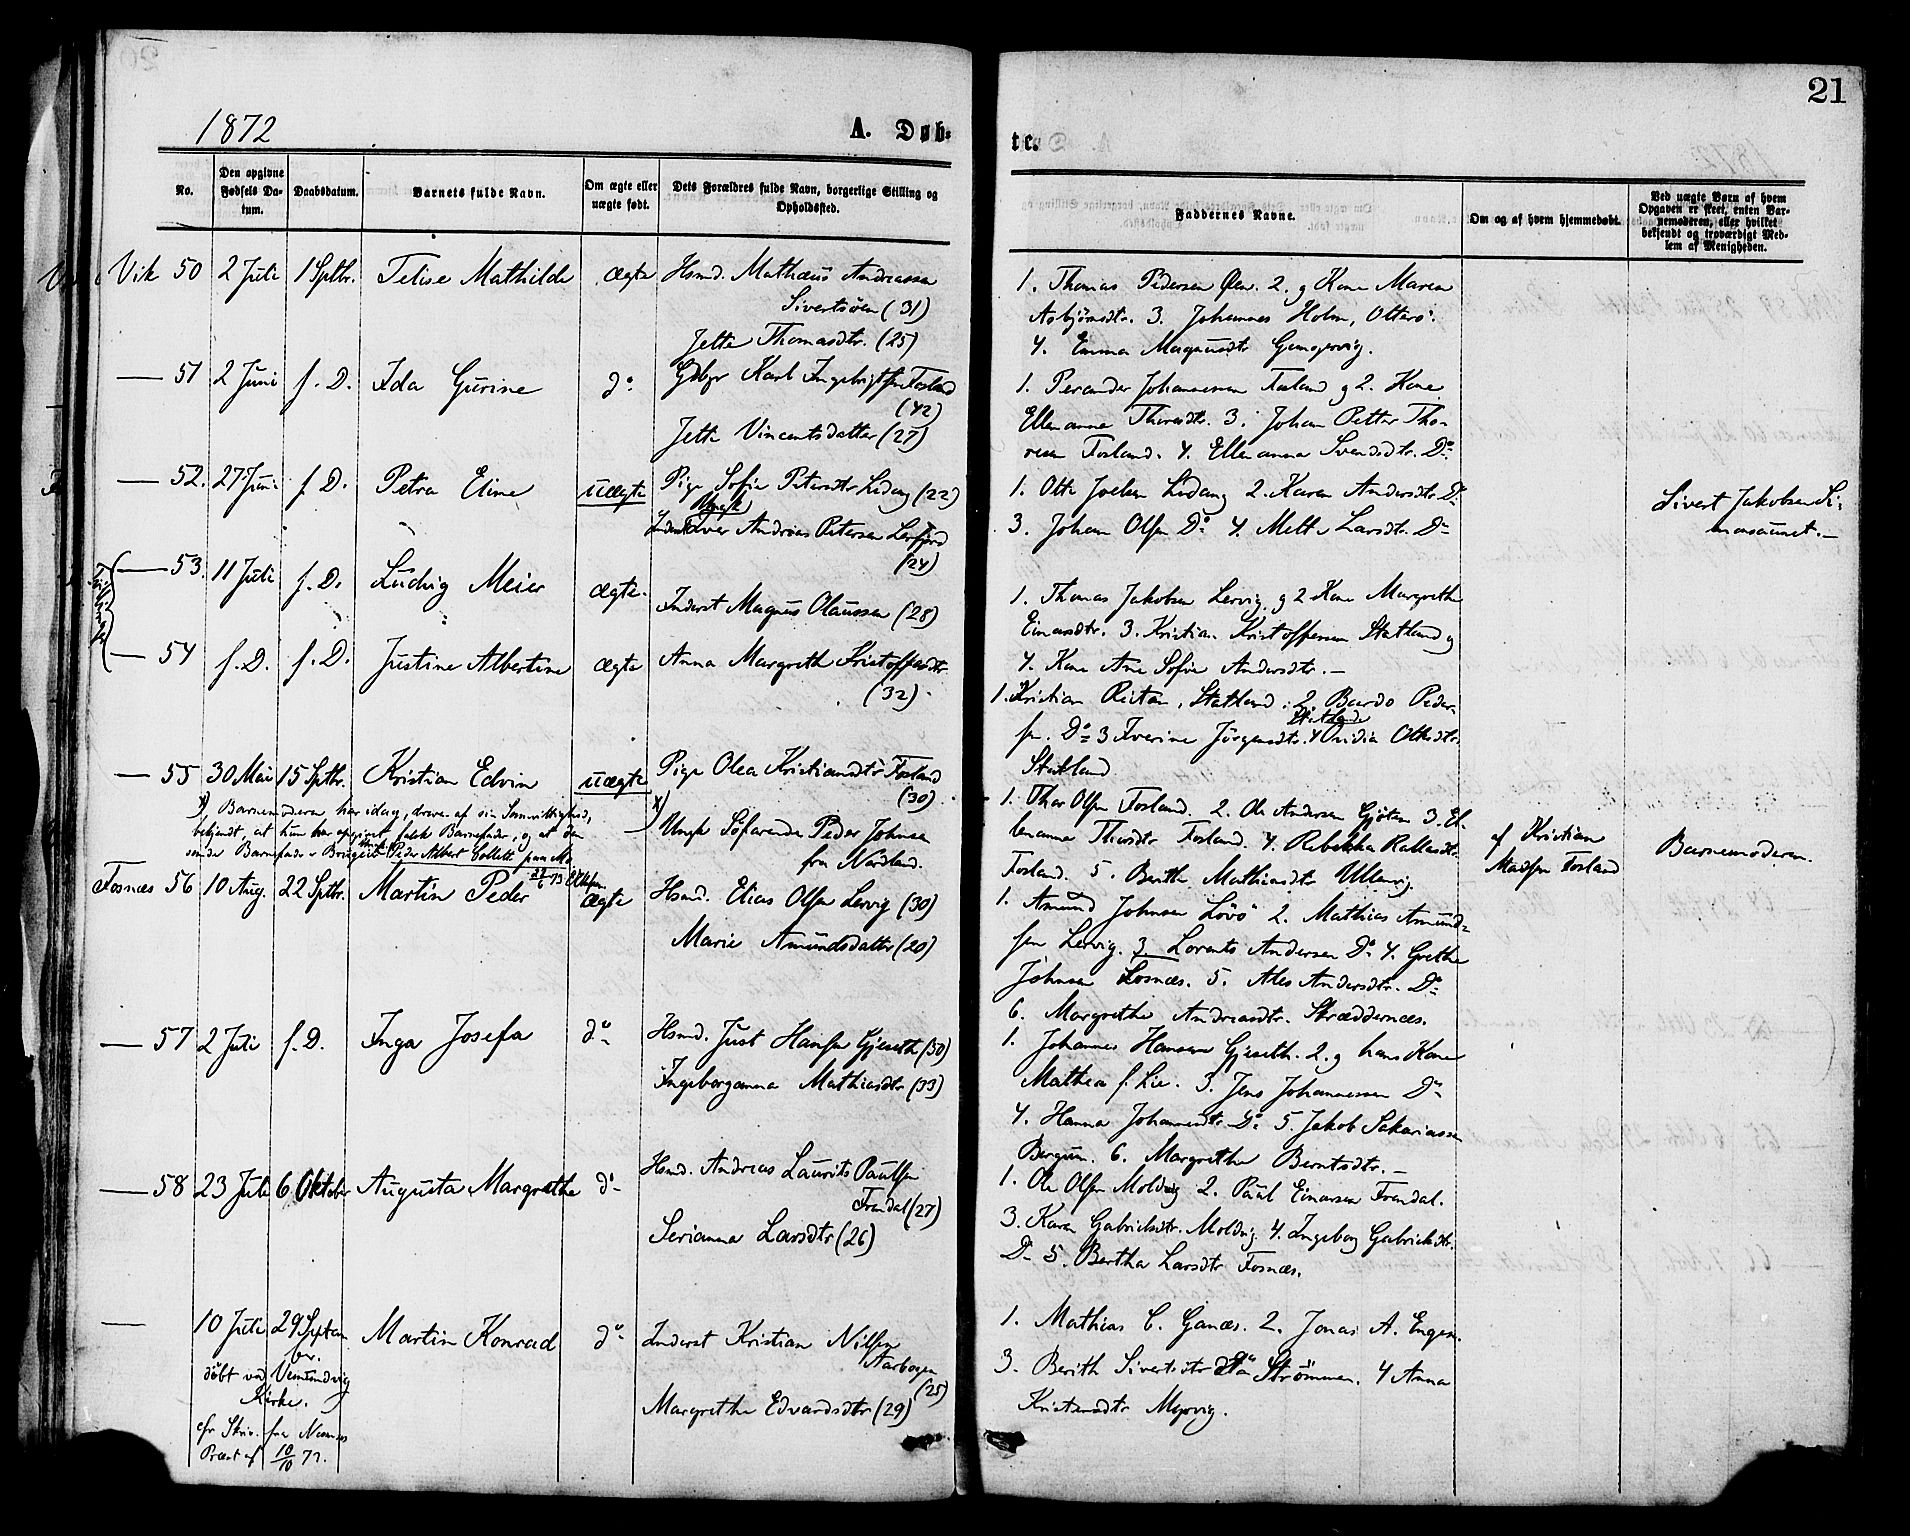 21
1872
A. Døb-
te.
No.
Den opgivne Fødsels Da-tum.
Daabsdatum.
Barnets fulde Navn.
Om ægte eller uægte født.
Dets Forældres fulde Navn, borgerlige Stilling og Opholdssted.
Faddernes Navne.
Om og af hvem hjemmedøbt.
Ved uægte Børn af hvem Opgaven er skeet, enten Bar-nemoderen, eller hvilket bekjendt og troværdigt Med-lem af Menigheden.
Vik 50 2 Juli 1 Sptbr. Mathilde ægte Hsmd. Mathæus Andreassen
Sivertsøen (31)
Jetta Thomasdtr. (25)
1. Thomas Pedersen Øen. 2. g Kone Maren
Asbjørnsdtr. 3. Johannes Holm, Otterø.
4. Emma Magnusdtr
51 2 Juni f. D. Ida Gurine do Gdbr Karl Fosland
(42)
Jetta Vincentsdatter (27)
1. Perander Johannessen Fosland g 2. Kone
Ellenanna 3. Johan Petter Tho-
resen Fosland. 4. Ellenanna Svendsdtr. Do
52. 27 Juni f. D. Petra Eline uægte Pige Sofie Petersdtr Lidang (22)
Ungk
Andreas Petersen
(24)
1. Otto Joelsen Lidang 2. Karen Andersdtr Do
3. Johan Olsen Do 4. Larsdtr. Do
Sivert Jakobsen Si-
monsaunet.
Tvillinger
53. 11 Juli f. D. Ludvig Meier ægte. Inderst Magnus Olaussen (28)
1. Thomas Jakobsen Lervig, g 2 Kone Margrethe
Einarsdtr. 3. Kristian Kristoffersen Statland g
54 f. D. f. D. Justine Albertine ægte Anna Margreth Kristoffersdtr
(32)
4. Kone Ane Sofie Andersdtr.
1. Kristian Reitan, Statland. 2. Bardo Peder-
sen. Do 3 Iverine Jörgensdtr. Statland 4 Ovidia Olsdtr.
Statland
55 30 Mai 15 Sptbr. Kristian Edvin uægte Pige Olea Kristiansdtr Fosland
(30)
x) Barnemoderen har idag, dreven af sin Samvittighed,
bekjendt, at hun har opgivet falsk Barnefader, og at den
sande Barnefader er Peder Albert Collett
x) Ungk Söfarende Peder Johnsen
fra Nordland.
1. Thor Olsen Fosland. 2. Ole Andersen Gjöten 3. El-
lenanna Fosland. 4. Rebekka
Fosland. 5. Berith Mathiasdtr
af Kristian
Madsen Fosland
Barnemoderen
Fosnæs 56 10 Aug. 22 Sptbr. Martin Peder ægte Hsmd. Elias Olsen Lervig (30)
Marie Amundsdatter (20)
1. Amund Johnsen Lövö 2. Mathias Amund-
sen Lervig. 3. Lorents Andersen Do 4. Grethe
Johnsen Fosnæs. 5. Ales Andersdtr. Do
6. Margrethe Andreasdtr. Skrædderness.
57 2 Juli f. D. Inga Josefa do Hsmd. Just Hansen Gjeseth (30)
Ingeborganna Mathiasdtr (33)
1. Johannes Hansen Gjeseth. 2. g hans Kone
Mathea f. Lie. 3. Jens Johannessen Do
4. Hanna Johannesdtr. Do 5. Jakob Sakariassen
Bergum. 6. Margrethe Berntsdtr.
58 23 Juli 6 Oktober Augusta Margrethe do Hsmd. Andreas Laurits Paulsen
Frendal (27)
Serianna Larsdtr (26)
1. Ole Olsen Moldvig 2. Paul Einarsen Frendal.
3. Karen Gabrielsdtr. Moldvig 4. Ingeborg Gabrielsdtr.
Do 5. Bertha Larsdtr Fosnæs.
10 Juli 29 Septem-
ber. Martin Konrad do Inderst Kristian Nilsen
Aarbogen
(25)
Margrethe Edvardsdtr (29)
döbt ved Vemundvig
Kirke.
cfr Skriv. fra Namsos
Præst af 10/10 72.
1. Mathias C. Ganæs. 2. Jonas A. Engen.
3. Berith Sivertsdtr Strömmen. 4 Anna
Kristensdtr Myrvig.